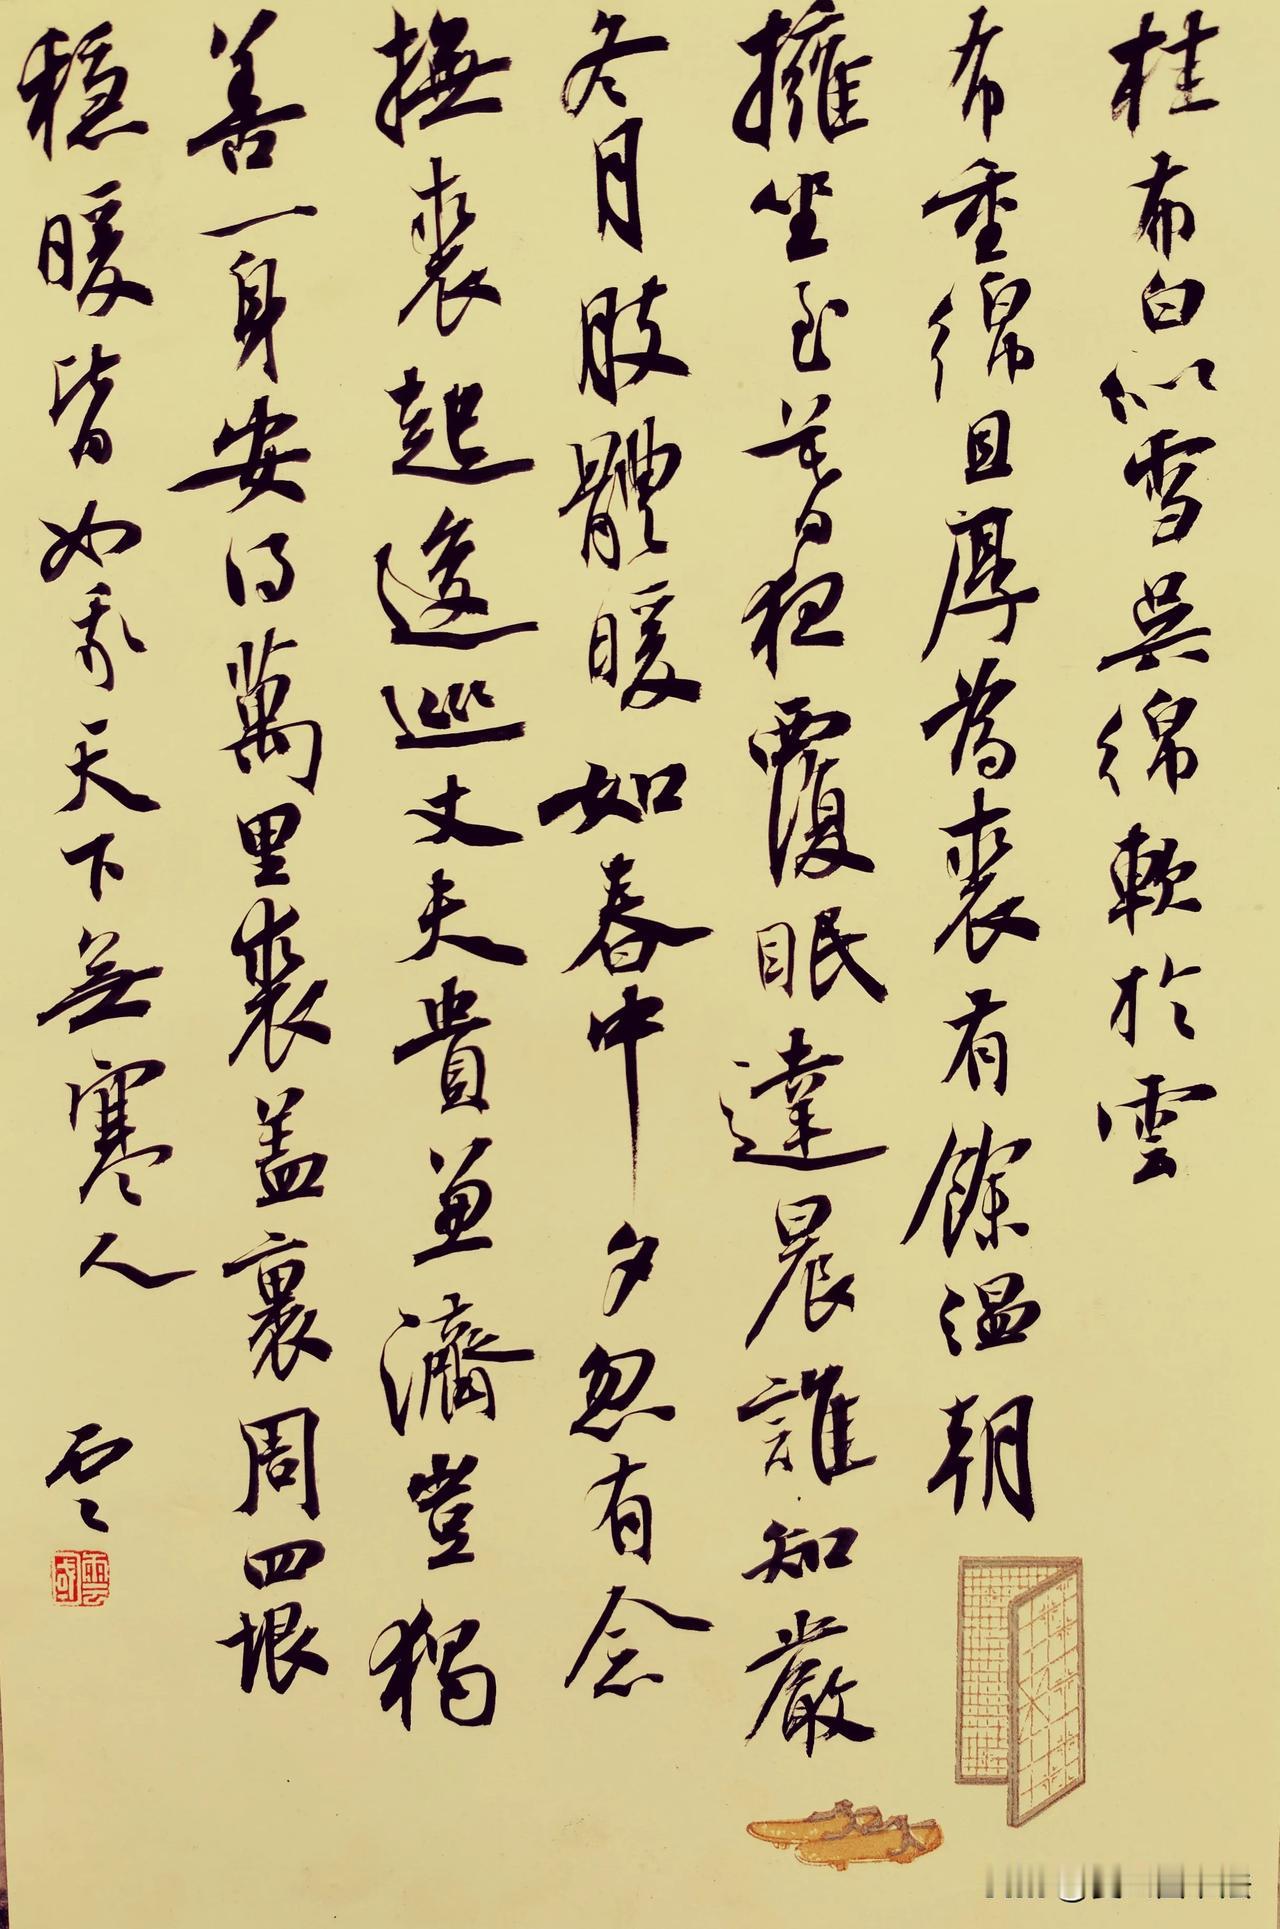 桂布白似雪吳綿軟於雲
布重綿且厚為裘有餘溫朝
擁坐至暮夜覆眠達晨誰知嚴
冬月肢體暖如春中夕忽有念
撫裘起逡巡丈夫貴兼濟豈獨
善一身安得萬里裘盖裹周四垠
穩暖皆如我天下無寒人
雲
雲國